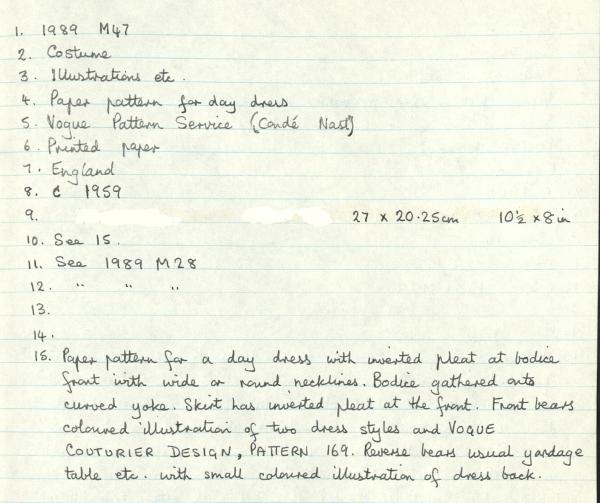 1. 1989 M47
2. Costume
3. Illustrations etc.
4. Paper pattern for day dress
5. Vogue Pattern Service (Condé Nast)
6. Printed paper
7. England
8. c 1959
9. 27 x 20.25cm 10½ x 8 in
10. See 15.
11. See 1989 M28
12. " " "
13.
14.
15. Paper pattern for a day dress with inverted pleat at bodice
front with wide or round necklines. Bodice gathered onto
curved yoke. Skirt has inverted pleat at the front. Front bears
coloured illustration of two dress styles and VOGUE
COUTURIER DESIGN, PATTERN 169. Reverse bears usual yardage
table etc. with small coloured illustration of dress back.